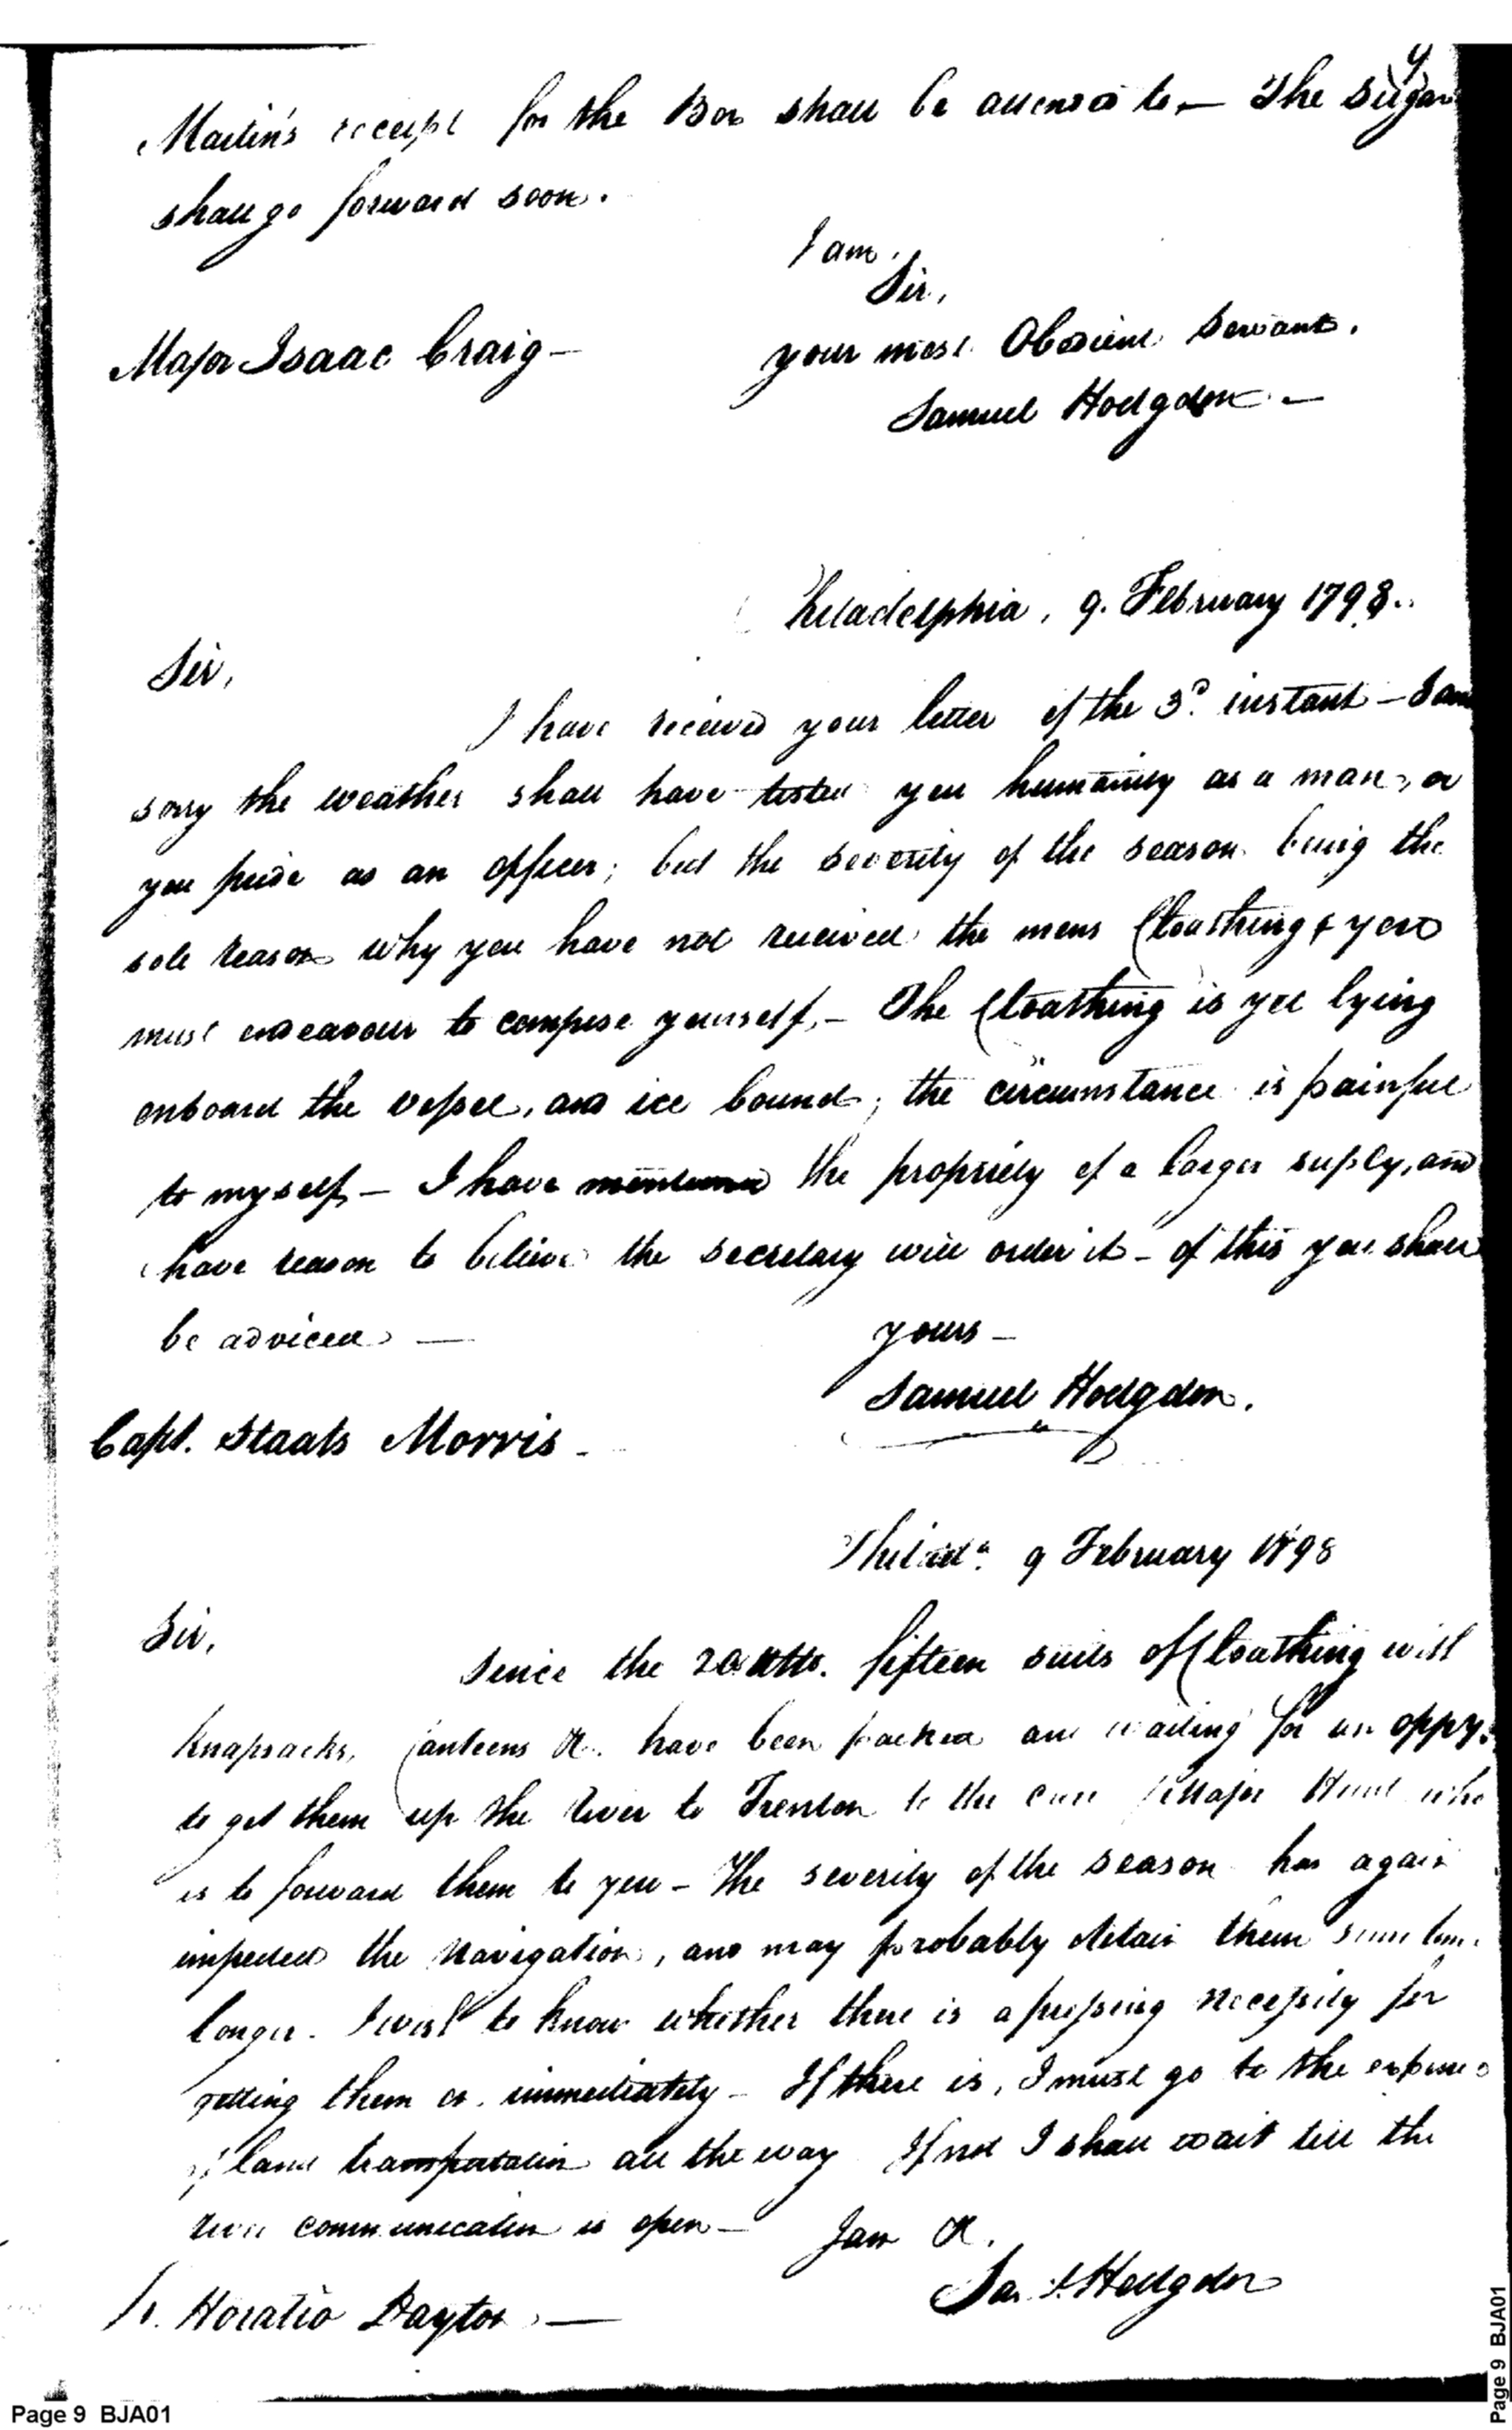 9
Martin's receipt for the Box shall be attended to, — The Sugar
shall go forward soon.
I am,
Sir,
your most Obedient Servant.
Major Isaac Craig —
Samuel Hodgdon —
Philadelphia, 9. February 1798.
Sir,
I have received your letter of the 3d. instant — I am
sorry the weather shall have tested you humanity as a man, or
you pride as an officer; but the severity of the season being the
sole reason why you have not received the mens Cloathing & you
must endeavour to compose yourself, — The Cloathing is yet lying
onboard the vessel, and ice bound; the circumstance is painful
to myself, — I have mentioned the propriety of a larger supply, and
have reason to believe the secretary will order it — of this you shall
be adviced —
yours —
Samuel Hodgdon.
Capt. Staats Morris —
Philada. 9 February 1798
Sir,
Since the 20 Ulto. fifteen suits of Cloathing with
Knapsacks, Canteens &c. have been packed and waiting for an oppy.
to get them up the River to Trenton to the care of Major Hunt who
is to forward them to you — The severity of the season has again
impeded the Navigation, and may probably detain them some time
longer. I wish to know whether there is a pressing necessity for
getting them on immediately — If there is, I must go to the expense
of land transportation all the way If not I shall wait till the
river communication is open —
I am &c.
Saml. Hodgdon
Horatio Dayton —
Page 9 BJA01
Page 9 BJA01